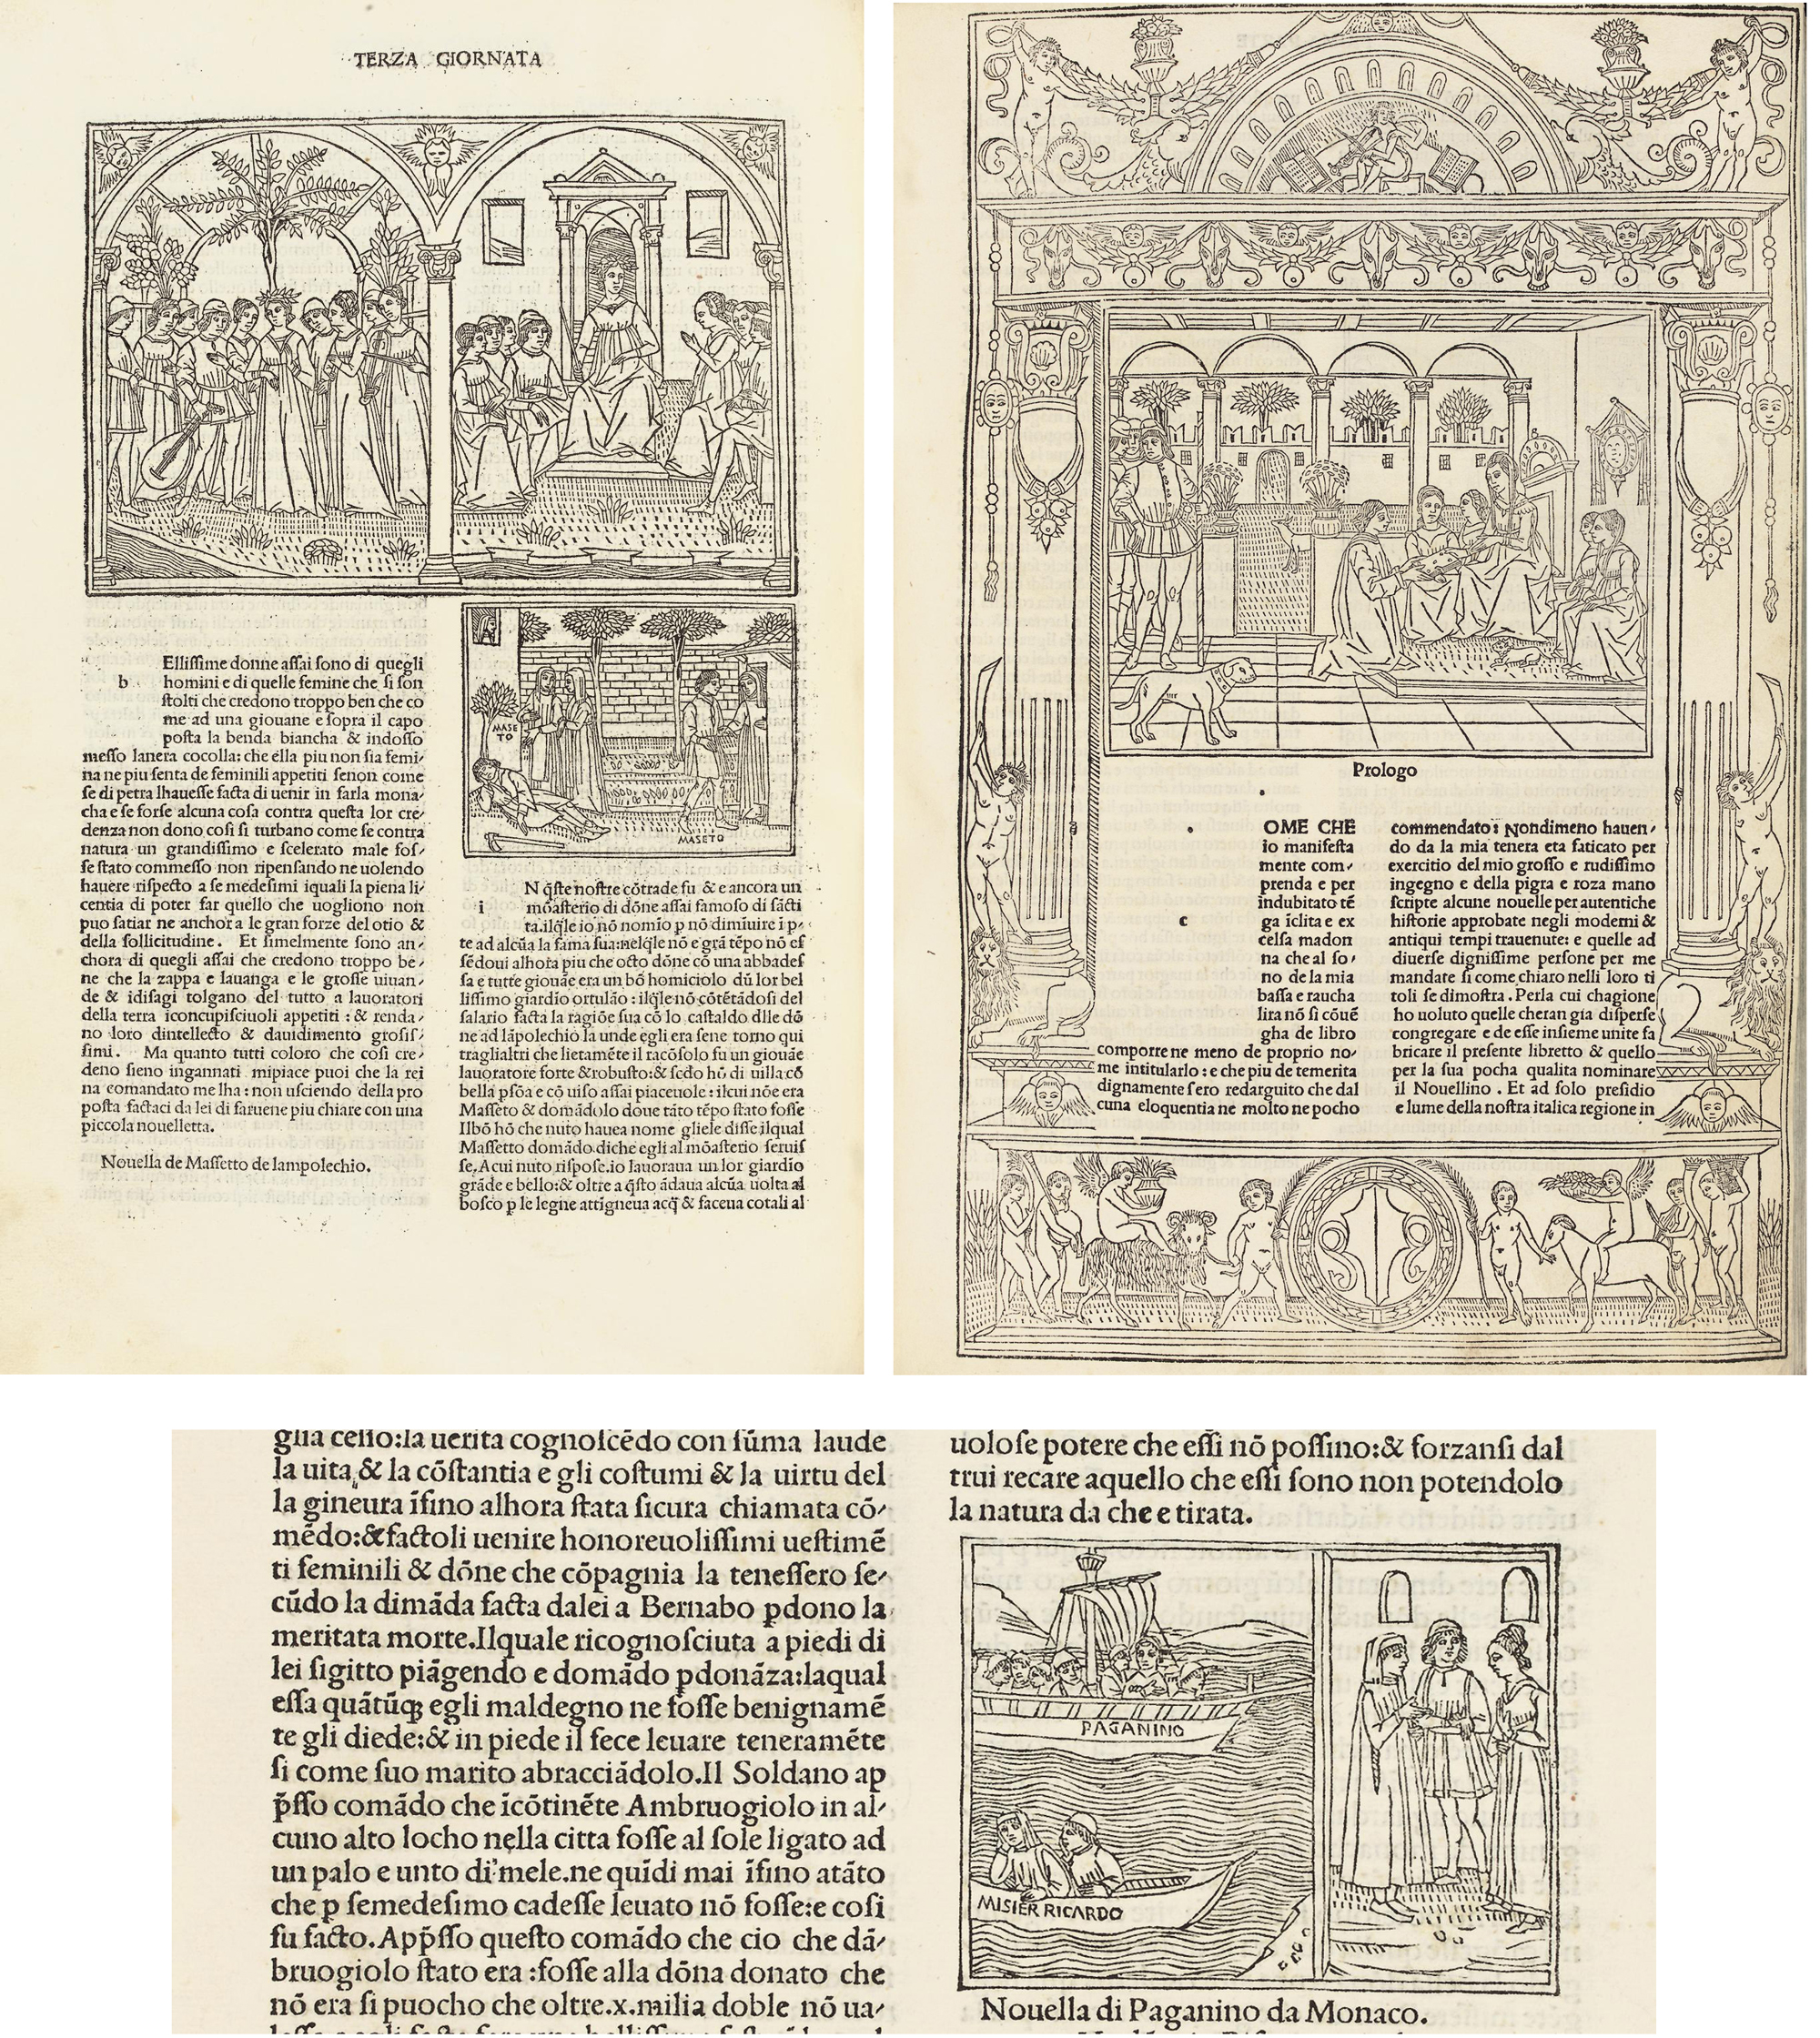 TERZA GIORNATA
Ellissime donne assai sono di quegli
b homini e di quelle femine che si son
stolti che credono troppo ben che co
me ad una giouane e sopra il capo
posta la benda biancha & indosso
messo lanera cocolla: che ella piu non sia femi/
na ne piu senta de feminili appetiti senon come
se di petra lhauesse facta di uenir in farla mona/
cha e se forse alcuna cosa contra questa lor cre/
denza non dono cosi si turbano come se contra
natura un grandissimo e scelerato male fos/
se stato commesso non ripensando ne uolendo
hauere rispecto a se medesimi iquali la piena li/
centia di poter far quello che uogliono non
puo satiar ne anchora le gran forze del otio &
della sollicitudine. Et simelmente sono an/
chora di quegli assai che credono troppo be/
ne che la zappa e lauanga e le grosse uiuan/
de & idisagi tolgano del tutto a lauoratori
della terra iconcupisciuoli appetiti : & renda/
no loro dintellecto & dauidimento grossis/
simi. Ma quanto tutti coloro che cosi cre/
deno sieno ingannati mipiace puoi che la rei
na comandato me lha: non usciendo della pro
posta factaci da lei di faruene piu chiare con una
piccola nouelletta.
Nouella de Massetto de lampolechio.
MASE
TO
MASETO
N q̃ste nostre cõtrade fu & e ancora un
i mõasterio di dõne assai famoso di sãcti
ta.ilq̃le io nõ nomio p nõ dimĩuire ĩ p/
te ad alcũa la fama sua:nelq̃le nõ e grã tẽpo nõ es
sẽdoui alhora piu che octo dõne cõ una abbades
sa e tutte giouãe era un bõ homiciolo dũ lor bel
lissimo giardĩo ortulão : ilq̃le nõ cõtẽtãdosi del
salario facta la ragiõe sua cõ lo castaldo dlle dõ
ne ad lãpolechio la unde egli era sene torno qui
traglialtri che lietamẽte il racõsolo fu un giouãe
lauoratore forte &robusto:& sẽdo hõ di uilla cõ
bella psõa e cõ uiso assai piaceuole : ilcui nõe era
Massetto & domãdolo doue tãto tẽpo stato fosse
Ilbõ hõ che nuto hauea nome gliele disse ilqual
Massetto domãdo diche egli al mõasterio seruis
se.A cui nuto rispose.io lauoraua un lor giardĩo
grãde e bello:& oltre a q̃sto ãdaua alcũa uolta al
bosco p le legne attigneua acq̃ & faceua cotali al
Prologo
OME CHE
io manifesta
mente com/
prenda e per
indubitato tẽ
c ga ĩclita e ex
celsa madon
na che al so/
no de la mia
bassa e raucha
lira nõ si cõuẽ
gha de libro
comporre ne meno de proprio no/
me intitularlo : e che piu de temerita
dignamente sero redarguito che dal
cuna eloquentia ne molto ne pocho
commendato: Nondimeno hauen/
do da la mia tenera eta faticato per
exercitio del mio grosso e rudissimo
ingegno e della pigra e roza mano
scripte alcune nouelle per autentiche
historie approbate negli moderni &
antiqui tempi trauenute: e quelle ad
diuerse dignissime persone per me
mandate si come chiaro nelli loro ti
toli se dimostra. Perla cui chagione
ho uoluto quelle cheran gia disperse
congregare e de esse insieme unite fa
bricare il presente libretto & quello
per la sua pocha qualita nominare
il Nouellino. Et ad solo presidio
e lume della nostra italica regione in
glia cello:la uerita cognoscẽdo con sũma laude
la uita & la cõstantia e gli costumi & la uirtu del
la gineura ĩsino alhora stata sicura chiamata cõ/
mẽdo:&factoli uenire honoreuolissimi uestimẽ
ti feminili & dõne che cõpagnia la tenessero se/
cũdo la dimãda facta dalei a Bernabo pdono la
meritata morte.Ilquale ricognosciuta a piedi di
lei sigitto piãgendo e domãdo pdonãza:laqual
essa quãtũq̃ egli maldegno ne fosse benignamẽ
te gli diede:& in piede il fece leuare teneramẽte
si come suo marito abracciãdolo.Il Soldano ap
p̃sso comãdo che ĩcõtinẽte Ambruogiolo in al/
cuno alto locho nella citta fosse al sole ligato ad
un palo e unto di mele.ne quĩdi mai ĩsino atãto
che p semedesimo cadesse leuato nõ fosse:e cosi
fu facto. App̃sso questo comãdo che cio che dã/
bruogiolo stato era :fosse alla dõna donato che
nõ era si puocho che oltre.x.milia doble nõ ua/
uolose potere che essi nõ possino:& forzansi dal
trui recare aquello che essi sono non potendolo
la natura da che e tirata.
PAGANINO
MISIER RICARDO
Nouella di Paganino da Monaco.